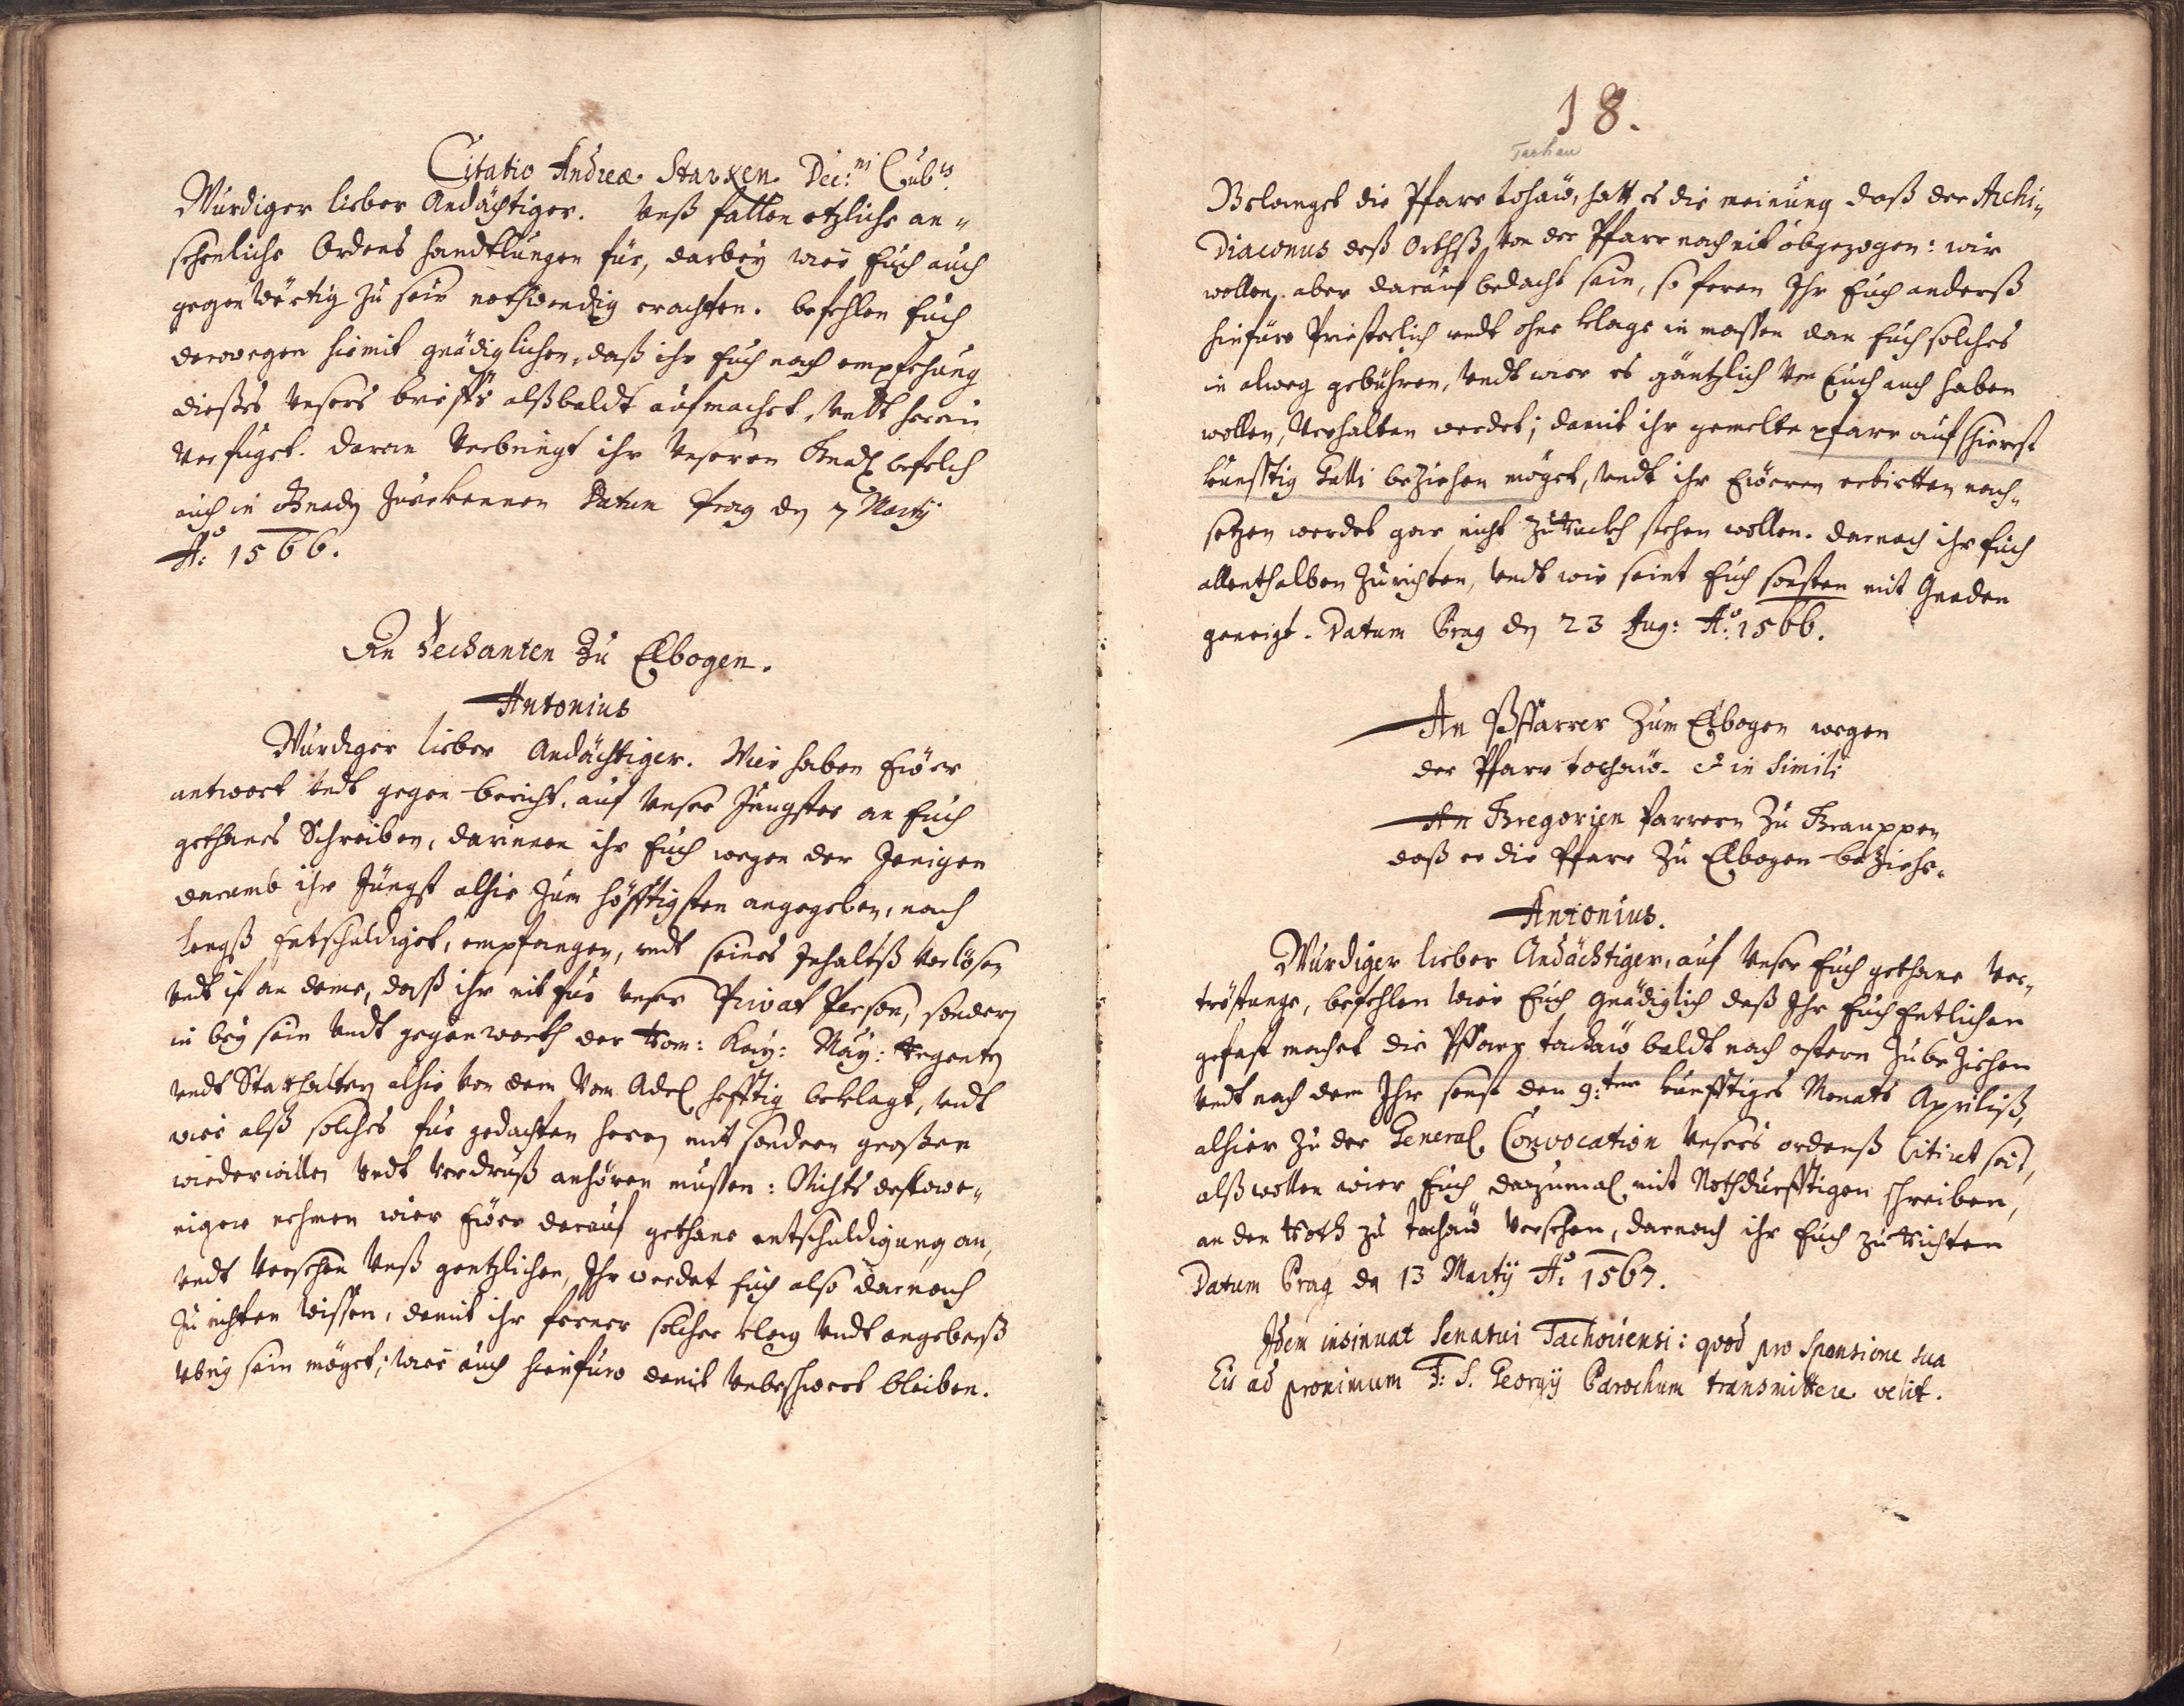 Citatio Andreæ Starken Dec:ni Cub:is
Würdiger lieber Andächtiger. Vnß fallen etzliche an-
sehenliche Ordens handtlungen für, darbey wier Euch auch
gegenwertig zu sein nothwendig erachten. befehlen Euch
derwegen hiemit gnädiglichen, daß ihr Euch nach empfehung
dießes Vnsers brieffs alßbaldt aufmachet, Vndt herein
Verfuget. daran Verbringt ihr Vnseren Gnad befelch
euch in Gnaden Zuerkennen Datum Prag den 7 Martij
Ao: 1566.
An Dechanten Zu Elbogen.
Antonius
Würdiger lieber Andächtiger. Wier haben Eüer
antwort Vndt gegen bericht, auf Vnser Jüngster an Euch
gethanes Schreiben, darinnen ihr Euch wegen der Jenigen
darumb ihr Jüngst alhie Zum höfftigsten angegeben, nach
lengß Entschuldiget, empfangen, vndt seines Inhaltß Verlösen
Vndt ist an deme, daß ihr nit für Vnser Privat Person, sondern
in bey sein Vndt gegenwerth der Röm: Kay: May: Regenten
Vndt Statthaltern alhie Von dem Vom Adel hefftig beklagt, Vndt
wier alß solches für gedachten herrn mit sondern großen
wiederwillen Vndt Verdruß anhören mußen: Nichts destowe-
niger nehmen wier Eüer darauf gethane entschuldigung an,
Vndt Versehen Vnß gentzlichen, Ihr werdet Euch also darnach
Zu richten Wissen, damit ihr ferner solcher klag Vndt angebenß
Vbrig sein möget; Wier auch hinfüro damit Vnbeschwert bleiben.
18.
Tachau
Belanget die Pfarr tachaw, hatt es die meinung daß der Archi-
Diaconus deß Orthß Von der Pfarr noch nit abgezogen: wir
wollen aber darauf bedacht sein, so feren Ihr Euch anderß
hinfüro Priesterlich vndt ohne klage in massen dan Euch solches
in alweg gebühren, Vndt wier es gäntzlich Von Euch auch haben
wollen, Verhalten werdet; damit ihr gemelte pfarr auf schierst
künfftig Galli beziehen möget, Vndt ihr Eueren erbietten nach-
setzen werdet gar nicht Zuruckh stehen wollen. darnach ihr Euch
allenthalben Zurichten, Vndt wir seint Euch sonsten mit Gnaden
geneigt. Datum Prag den 23 Aug: Ao: 1566.
An Pffarrer Zum Elbogen wegen
der Pfarr tachaw. & in Simili
An Gregorien Parrern Zu Grauppen
daß er die Pfarr Zu Elbogen beziehe.
Antonius.
Würdiger lieber Andächtiger, auf Vnser Euch gethane Ver-
tröstunge, befehlen Wier Euch Gnädiglich daß Ihr Euch Entlichen
gefast machet die Pffarr tachaw baldt nach ostern Zubeziehen
Vndt nach dem Ihr sonst den 9:ten künfftiges Monats Aprilis,
alhier Zu der General Convocation Vnsers ordenß Citiret seit,
alß wollen wier Euch dazumal mit Nothdürfftigen schreiben,
an den Rath zu tachaw Versehen, darnach ihr Euch zu Richten
Datum Prag den 13 Martij Ao: 1567.
Idem insinuat Senatui Tachoviensi: quod pro Sponsione sua
Eis ad proximum F: S. Georgij Parochum transmittere velit.